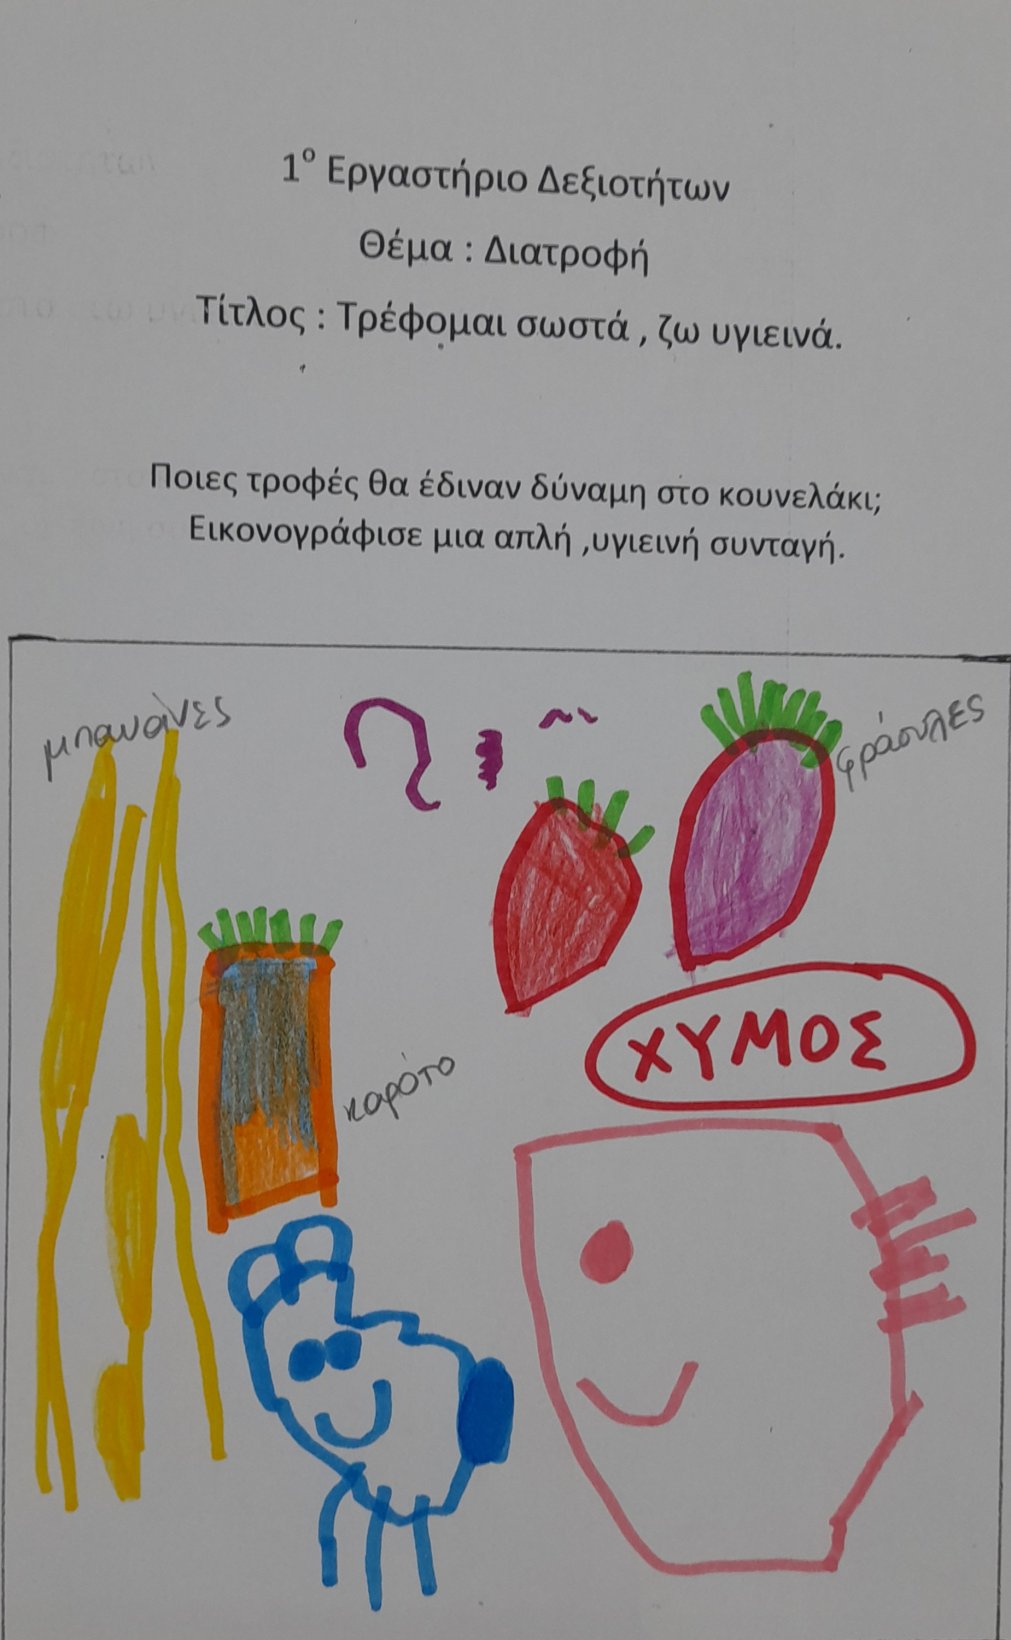 1ο Εργαστήριο Δεξιοτήτων
Θέμα : Διατροφή
Τίτλος : Τρέφομαι σωστά , ζω υγιεινά.
Ποιες τροφές θα έδιναν δύναμη στο κουνελάκι;
Εικονογράφισε μια απλή ,υγιεινή συνταγή.
μπανάνες
φράουλες
ΧΥΜΟΣ
καρότο